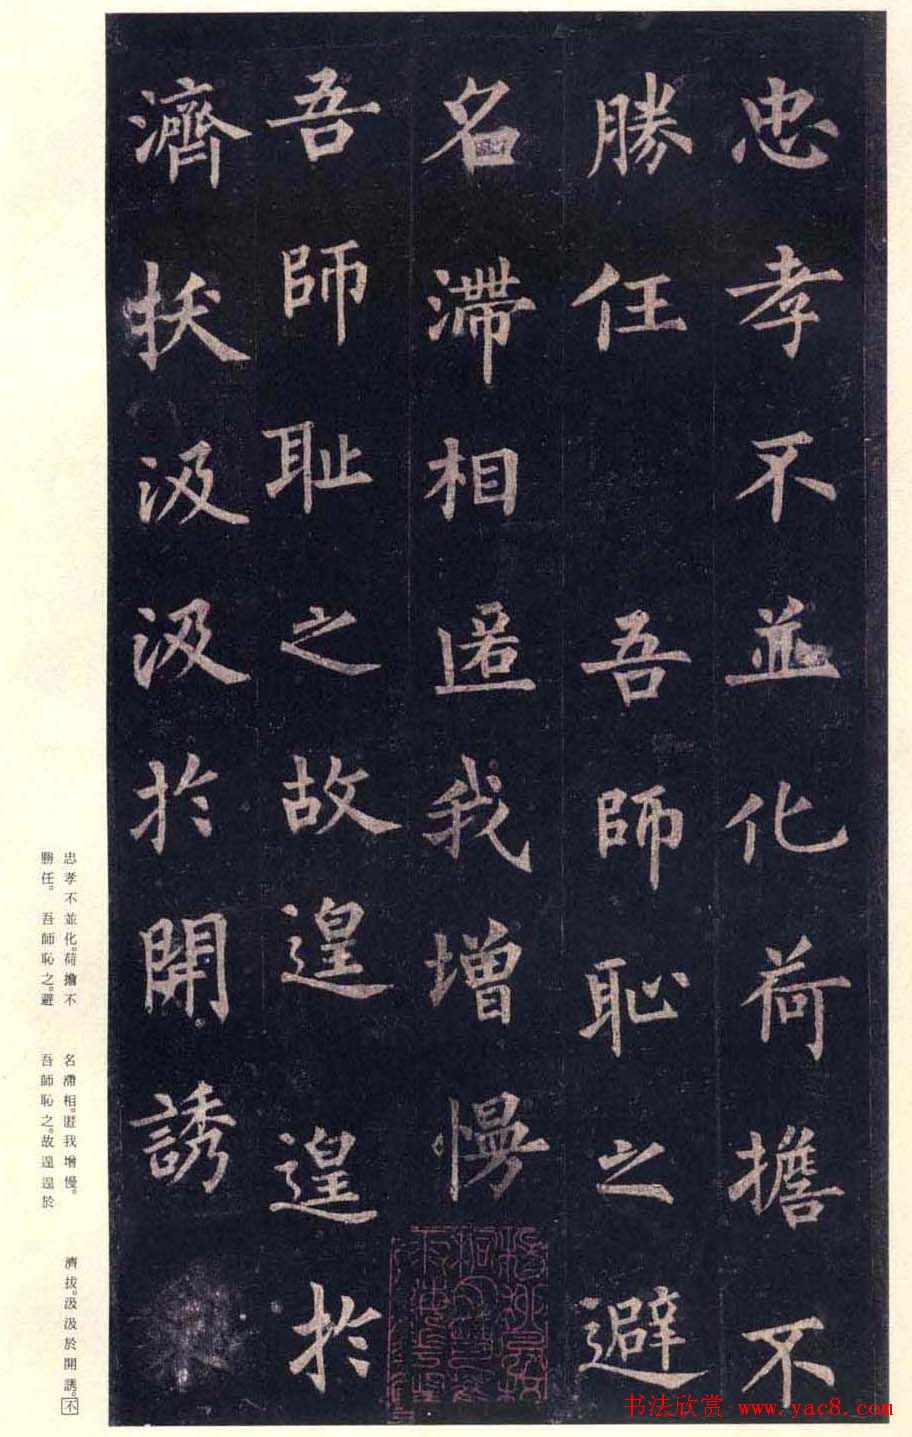 忠孝不並化荷擔不
勝任吾師恥之避
名滯相匿我增慢
吾師耻之故遑遑於
濟拔汲汲於開誘
忠孝不並化。荷擔不
勝任。吾師恥之。避
名滯相。匿我增慢。
吾師恥之。故遑遑於
濟拔。汲汲於開誘。不
书法欣赏 www.yac8.com